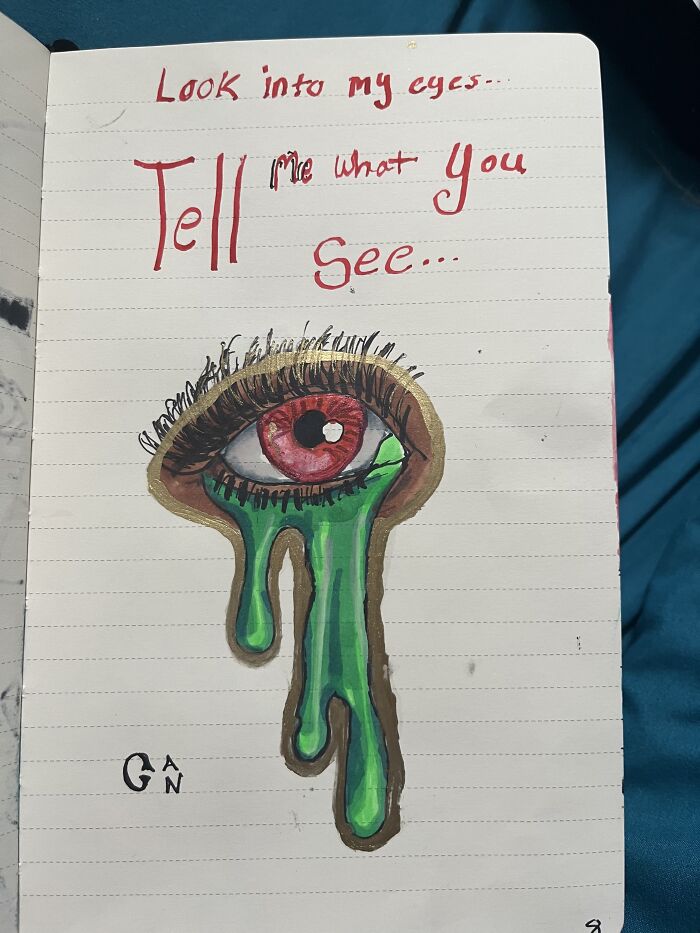 Look into my eyes...
Tell Me what you
See...
G A N
8